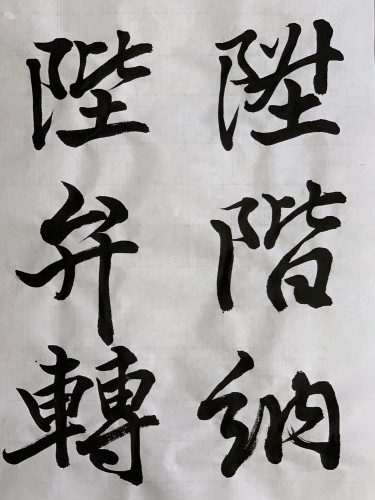 陞階納
陛弁轉